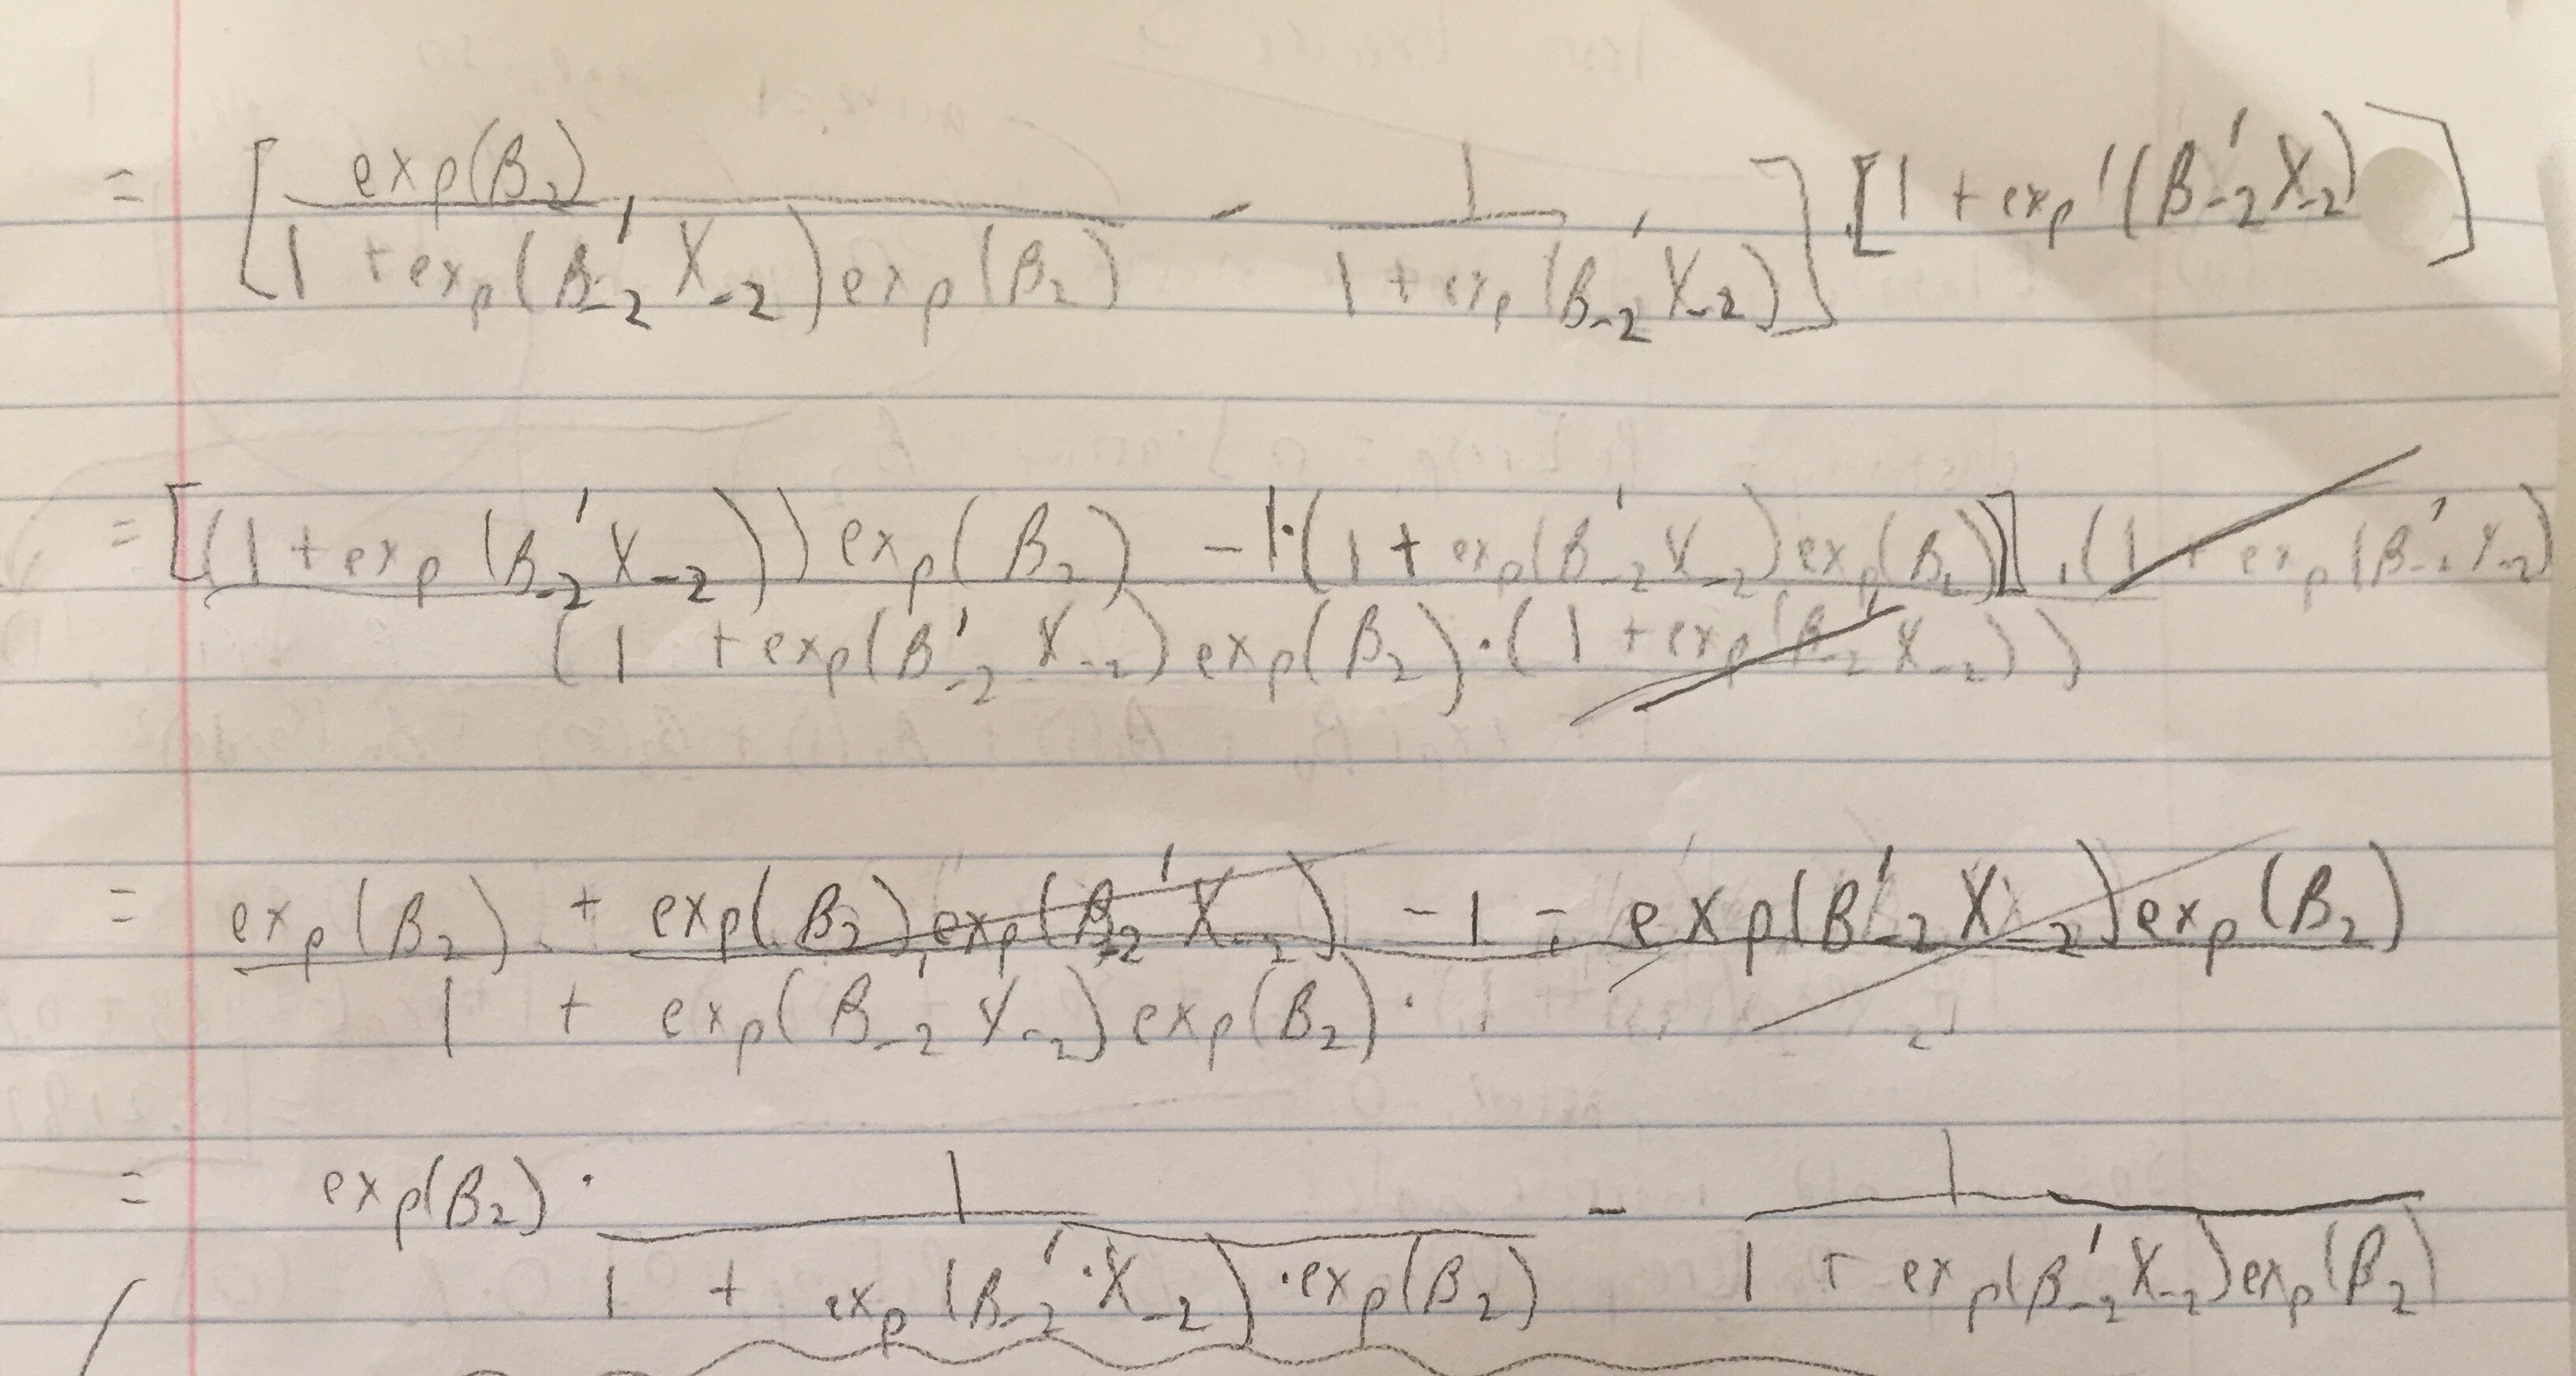 = [ exp(β₂) / 1 + exp(β₋₂' X₋₂) exp(β₂) - 1 / 1 + exp(β₋₂' X₋₂) ] · [1 + exp'(β₋₂' X₋₂)]
= [(1 + exp(β₋₂' X₋₂)) exp(β₂) - 1·(1 + exp(β₋₂' X₋₂) exp(β₂))] · (1 + exp(β₋₂' X₋₂)
(1 + exp(β'₋₂ X₋₂) exp(β₂) · (1 + exp(β₋₂' X₋₂))
= exp(β₂) + exp(β₂) exp(β₋₂' X₋₂) - 1 - exp(β'₋₂ X₋₂) exp(β₂)
1 + exp(β₋₂' X₋₂) exp(β₂) ·
= exp(β₂) · 1 / 1 + exp(β₋₂' · X₋₂) · exp(β₂) - 1 / 1 + exp(β₋₂' X₋₂) exp(β₂)